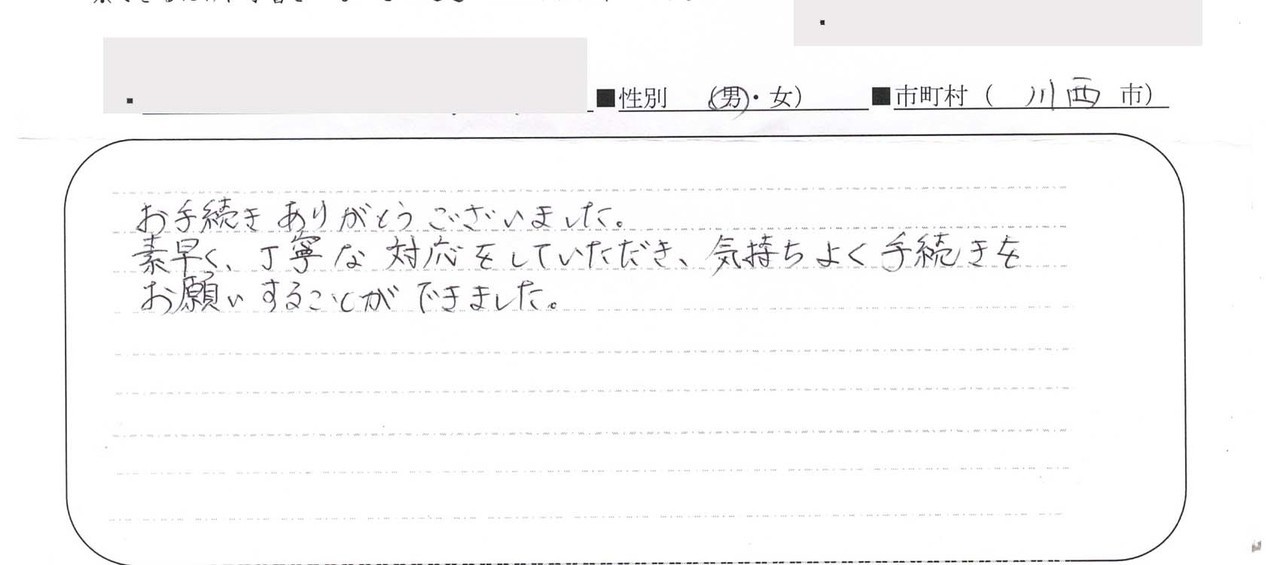 ■性別 (男・女) ■市町村 ( 川西 市)
お手続きありがとうございました。
素早く、丁寧な対応をしていただき、気持ちよく手続きを
お願いすることができました。